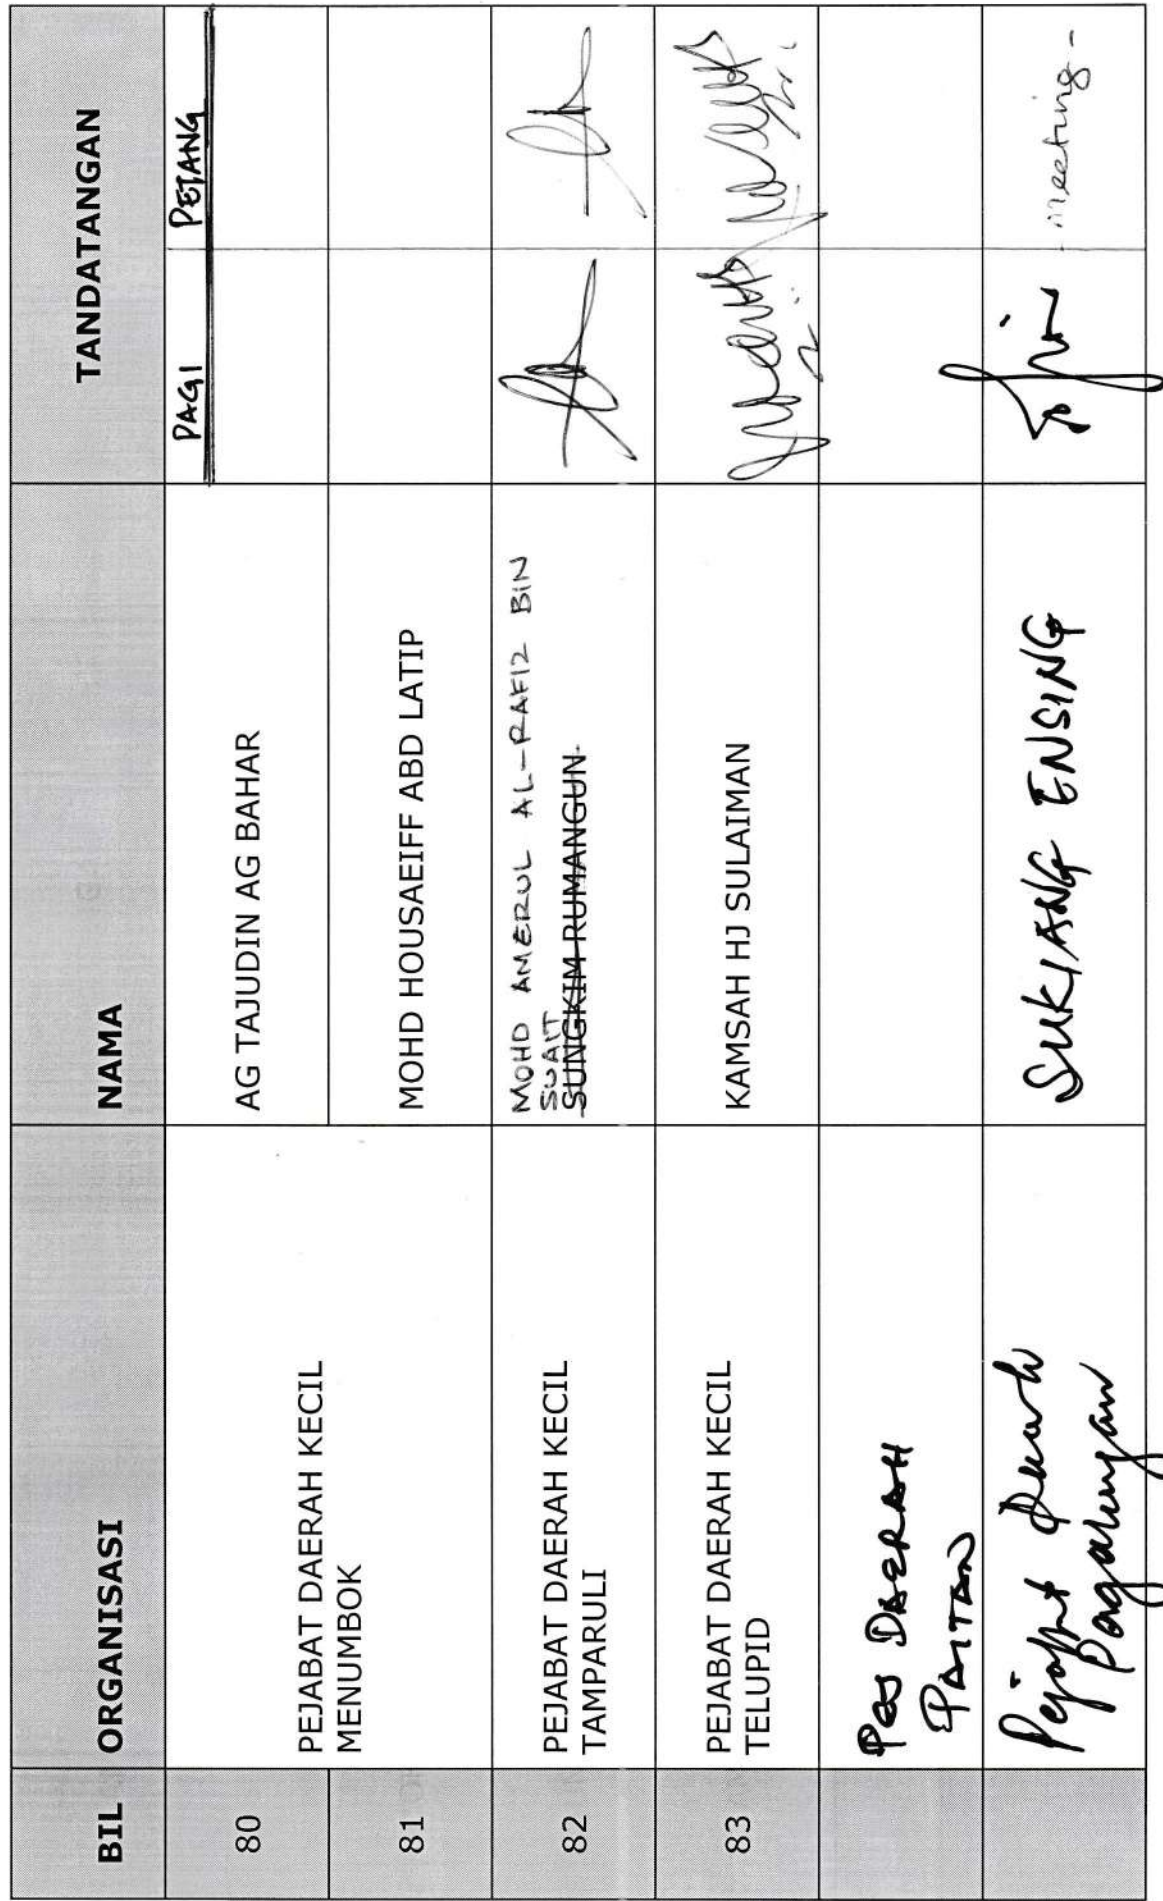 BIL ORGANISASI NAMA TANDATANGAN
PAGI PETANG
80 PEJABAT DAERAH KECIL MENUMBOK AG TAJUDIN AG BAHAR
81 MOHD HOUSAEIFF ABD LATIP
82 PEJABAT DAERAH KECIL TAMPARULI MOHD AMERUL AL-RAFIZ BIN SUAIT
SUNGKIM RUMANGUN
83 PEJABAT DAERAH KECIL TELUPID KAMSAH HJ SULAIMAN
DAERAH
PAITAN
Pejabat Daerah SUKIANG ENSING - meeting -
Pagalungan